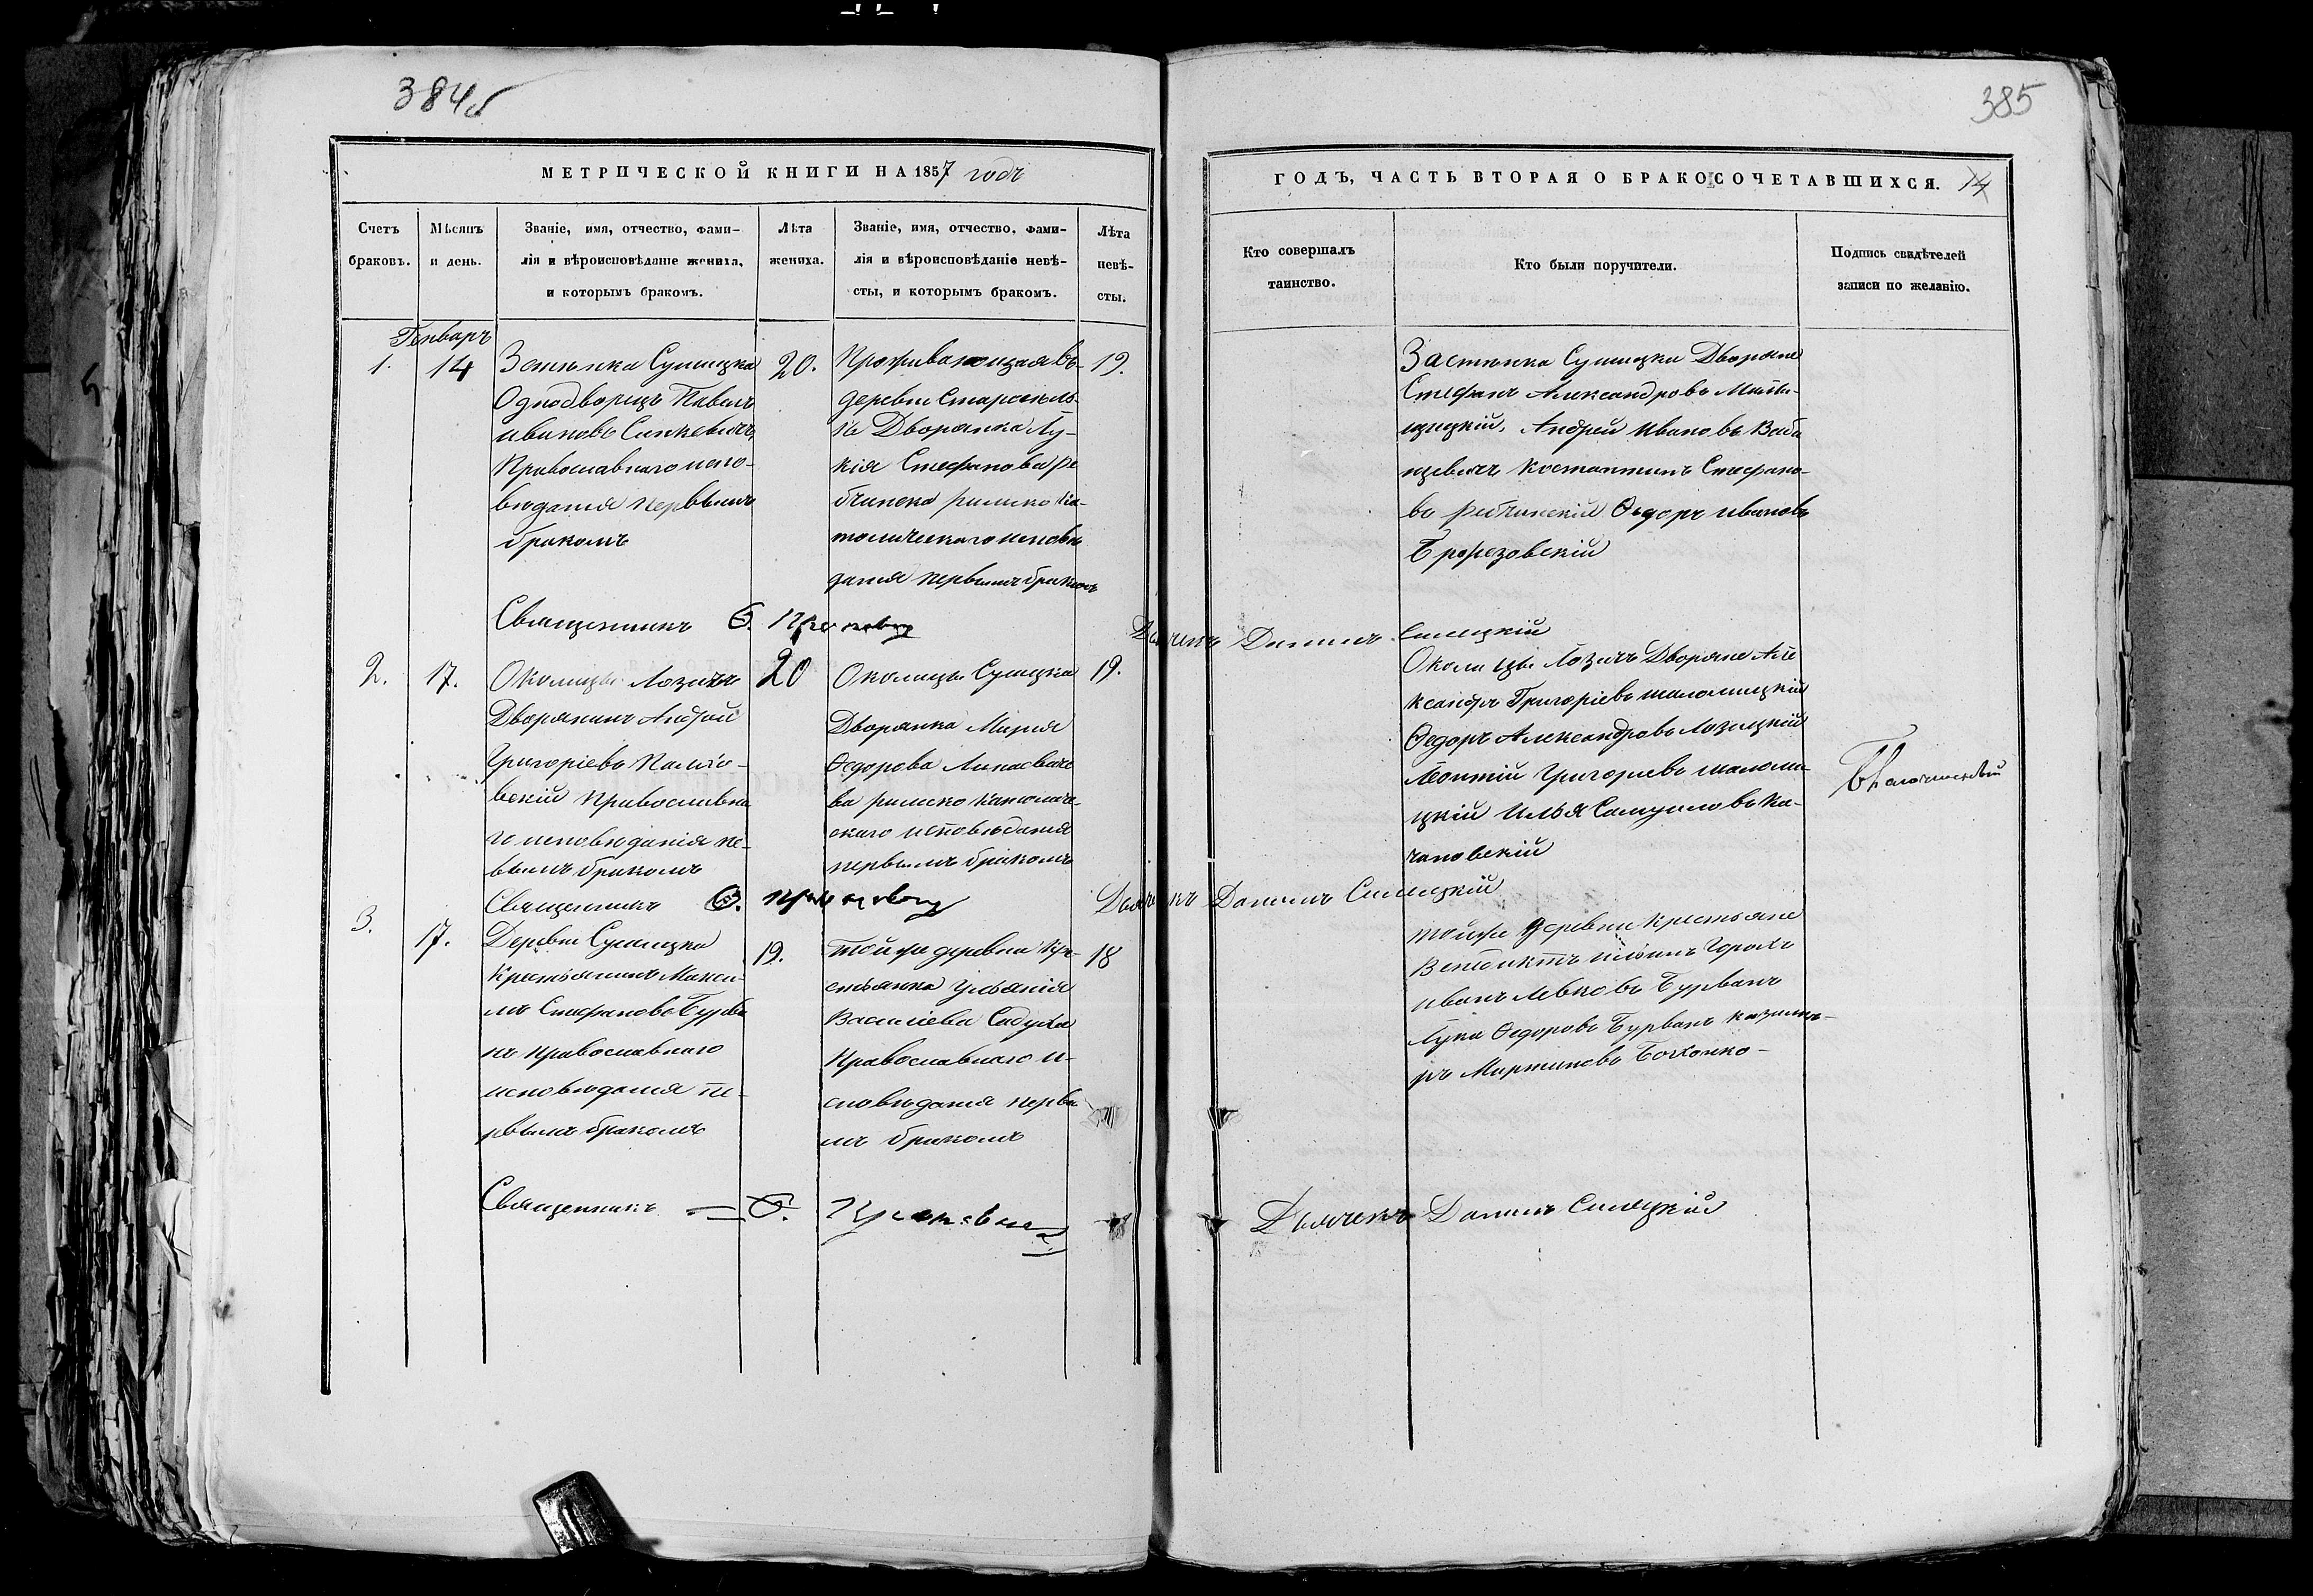 384б
МЕТРИЧЕСКОЙ КНИГИ НА 1857 годъ
Счетъ браковъ.
Мѣсяцъ и день.
Званіе, имя, отчество, фами-
лія и вѣроисповѣданіе жениха,
и которымъ бракомъ.
Лѣта жениха.
Званіе, имя, отчество, фами-
лія и вѣроисповѣданіе невѣ-
сты, и которымъ бракомъ.
Лѣта невѣ-
сты.
Генваръ
1.
14
Застѣнка Сушицка
Однодворецъ Павелъ
Ивановъ Синкевичъ
Православнаго испо-
вѣданія первымъ
бракомъ
20.
Проживающая въ
деревне
Дворянка Лу-
кія Стефанова Ре
бчинска римско Ка-
толическаго исповѣ
данія первымъ бракомъ
19.
Священникъ Ѳ.
2.
17.
Околицы Лозичъ
Дворянинъ Андрей
Григоріевъ
вскій Православна
го исповѣданія пе-
вымъ бракомъ
20
Околицы Сушицка
Дворянка Марія
Ѳедорова
ва римско католиче-
скаго исповѣданія
первымъ бракомъ
19.
Священникъ Ѳ.
3.
17.
Деревни Сушицка
Крестьянинъ Макси
мъ Стефановъ Бурва
нъ Православнаго
исповѣданія пе-
рвымъ бракомъ
19.
Тойже деревни Кре-
стьянка Ульянія
Василіева Садуха
Православнаго и-
сповѣданія первы
мъ бракомъ
18
Священникъ Ѳ.
385
ГОДЪ, ЧАСТЬ ВТОРАЯ О БРАКОСОЧЕТАВШИХСЯ. 14
Кто совершалъ
таинство.
Кто были поручители.
Подпись свидѣтелей
записи по желанію.
Застѣнка Сушицка Дворяне
Стефанъ Александровъ
Андрей Ивановъ
Костантинъ Стефано-
въ Рибчинскій Ѳедоръ Ивановъ
Дьячекъ Даниилъ
Околицы Лозичъ Дворяне Але
ксандръ Григоріевъ Шаломицкій
Ѳедоръ Александровъ Лозицкій
Леонтій Григоріевъ Шаломи
цкій Илья Самуиловъ Ка-
чановскій
Дьячекъ Даниилъ
Тойже деревни Крестьяне
Венедиктъ Ильинъ Горохъ
Иванъ Левковъ Бурванъ
Лука Ѳедоровъ Бурванъ Казими-
ръ Мартиновъ
Дьячекъ Даниилъ